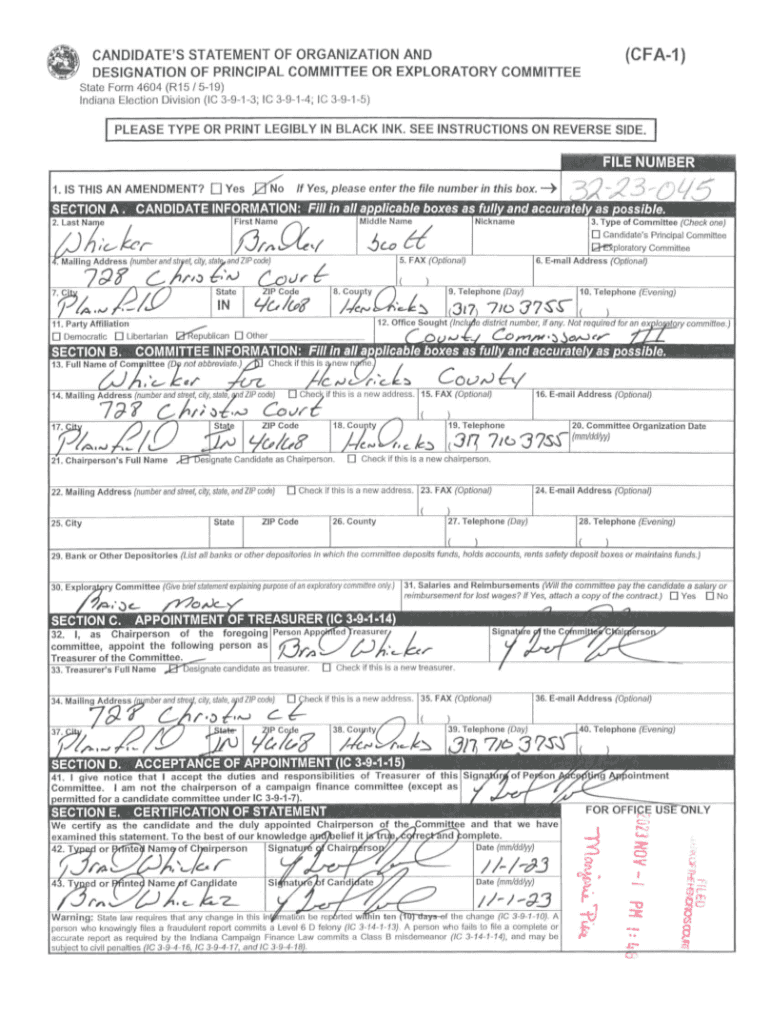 CANDIDATE'S STATEMENT OF ORGANIZATION AND (CFA-1)
DESIGNATION OF PRINCIPAL COMMITTEE OR EXPLORATORY COMMITTEE
State Form 4604 (R15 / 5-19)
Indiana Election Division (IC 3-9-1-3; IC 3-9-1-4; IC 3-9-1-5)
PLEASE TYPE OR PRINT LEGIBLY IN BLACK INK. SEE INSTRUCTIONS ON REVERSE SIDE.
FILE NUMBER
1. IS THIS AN AMENDMENT? Yes No If Yes, please enter the file number in this box. → 32-23-045
SECTION A. CANDIDATE INFORMATION: Fill in all applicable boxes as fully and accurately as possible.
2. Last Name First Name Middle Name Nickname 3. Type of Committee (Check one)
Whicker Bradley Scott
Candidate's Principal Committee
Exploratory Committee
4. Mailing Address (number and street, city, state, and ZIP code) 5. FAX (Optional) 6. E-mail Address (Optional)
728 Christin Court ( )
7. City State ZIP Code 8. County 9. Telephone (Day) 10. Telephone (Evening)
Plainfield IN 46168 Hendricks (317) 710 3755 ( )
11. Party Affiliation 12. Office Sought (Include district number, if any. Not required for an exploratory committee.)
Democratic Libertarian Republican Other County Commissoner III
SECTION B. COMMITTEE INFORMATION: Fill in all applicable boxes as fully and accurately as possible.
13. Full Name of Committee (Do not abbreviate.) Check if this is a new name.
Whicker for Hendricks County
14. Mailing Address (number and street, city, state, and ZIP code) Check if this is a new address. 15. FAX (Optional) 16. E-mail Address (Optional)
728 Christin Court ( )
17. City State ZIP Code 18. County 19. Telephone 20. Committee Organization Date
(mm/dd/yy)
Plainfield IN 46168 Hendricks (317 710 3755
21. Chairperson's Full Name Designate Candidate as Chairperson. Check if this is a new chairperson.
22. Mailing Address (number and street, city, state, and ZIP code) Check if this is a new address. 23. FAX (Optional) 24. E-mail Address (Optional)
( )
25. City State ZIP Code 26. County 27. Telephone (Day) 28. Telephone (Evening)
( ) ( )
29. Bank or Other Depositories (List all banks or other depositories in which the committee deposits funds, holds accounts, rents safety deposit boxes or maintains funds.)
30. Exploratory Committee (Give brief statement explaining purpose of an exploratory committee only.) 31. Salaries and Reimbursements (Will the committee pay the candidate a salary or
reimbursement for lost wages? If Yes, attach a copy of the contract.) Yes No
Raise Money
SECTION C. APPOINTMENT OF TREASURER (IC 3-9-1-14)
32. I, as Chairperson of the foregoing Person Appointed Treasurer Signature of the Committee Chairperson
committee, appoint the following person as Brad Whicker
Treasurer of the Committee.
33. Treasurer's Full Name Designate candidate as treasurer. Check if this is a new treasurer.
34. Mailing Address (number and street, city, state, and ZIP code) Check if this is a new address. 35. FAX (Optional) 36. E-mail Address (Optional)
728 Christin Ct ( )
37. City State ZIP Code 38. County 39. Telephone (Day) 40. Telephone (Evening)
Plainfield IN 46168 Hendricks (317 710 3755 ( )
SECTION D. ACCEPTANCE OF APPOINTMENT (IC 3-9-1-15)
41. I give notice that I accept the duties and responsibilities of Treasurer of this Signature of Person Accepting Appointment
Committee. I am not the chairperson of a campaign finance committee (except as
permitted for a candidate committee under IC 3-9-1-7).
SECTION E. CERTIFICATION OF STATEMENT FOR OFFICE USE ONLY
We certify as the candidate and the duly appointed Chairperson of the Committee and that we have
examined this statement. To the best of our knowledge and belief it is true, correct and complete.
42. Typed or Printed Name of Chairperson Signature of Chairperson Date (mm/dd/yy)
Brad Whicker 11-1-23
43. Typed or Printed Name of Candidate Signature of Candidate Date (mm/dd/yy)
Brad Whicker 11-1-23
Warning: State law requires that any change in this information be reported within ten (10) days of the change (IC 3-9-1-10). A
person who knowingly files a fraudulent report commits a Level 6 D felony (IC 3-14-1-13). A person who fails to file a complete or
accurate report as required by the Indiana Campaign Finance Law commits a Class B misdemeanor (IC 3-14-1-14), and may be
subject to civil penalties (IC 3-9-4-16, IC 3-9-4-17, and IC 3-9-4-18).
FILED
2023 NOV -1 PM 1:46